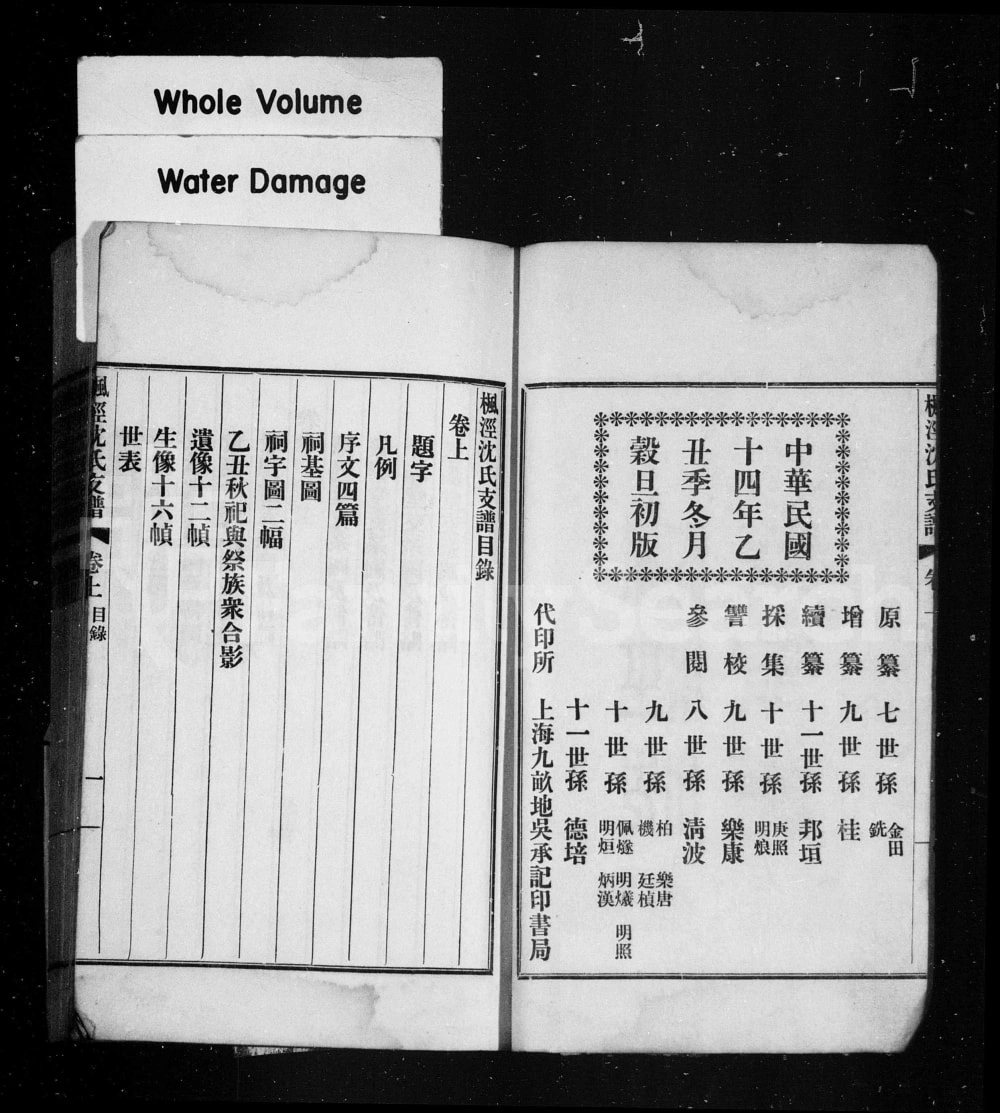 Whole Volume
Water Damage
楓涇沈氏支譜
中華民國
十四年乙
丑季冬月
穀旦初版
原纂 七世孫 金田 銑
增纂 九世孫 桂
續纂 十一世孫 邦垣
採集 十世孫 庚照 明烺
讐校 九世孫 樂康
參閱 八世孫 清波
九世孫 柏 樂唐 機 廷楨
十世孫 佩燧 明爔 明照 明烜 炳漢
十一世孫 德培
代印所 上海九畝地吳承記印書局
楓涇沈氏支譜目錄
卷上
題字
凡例
序文四篇
祠基圖
祠宇圖二幅
乙丑秋祀與祭族衆合影
遺像十二幀
生像十六幀
世表
楓涇沈氏支譜 卷上 目錄 一